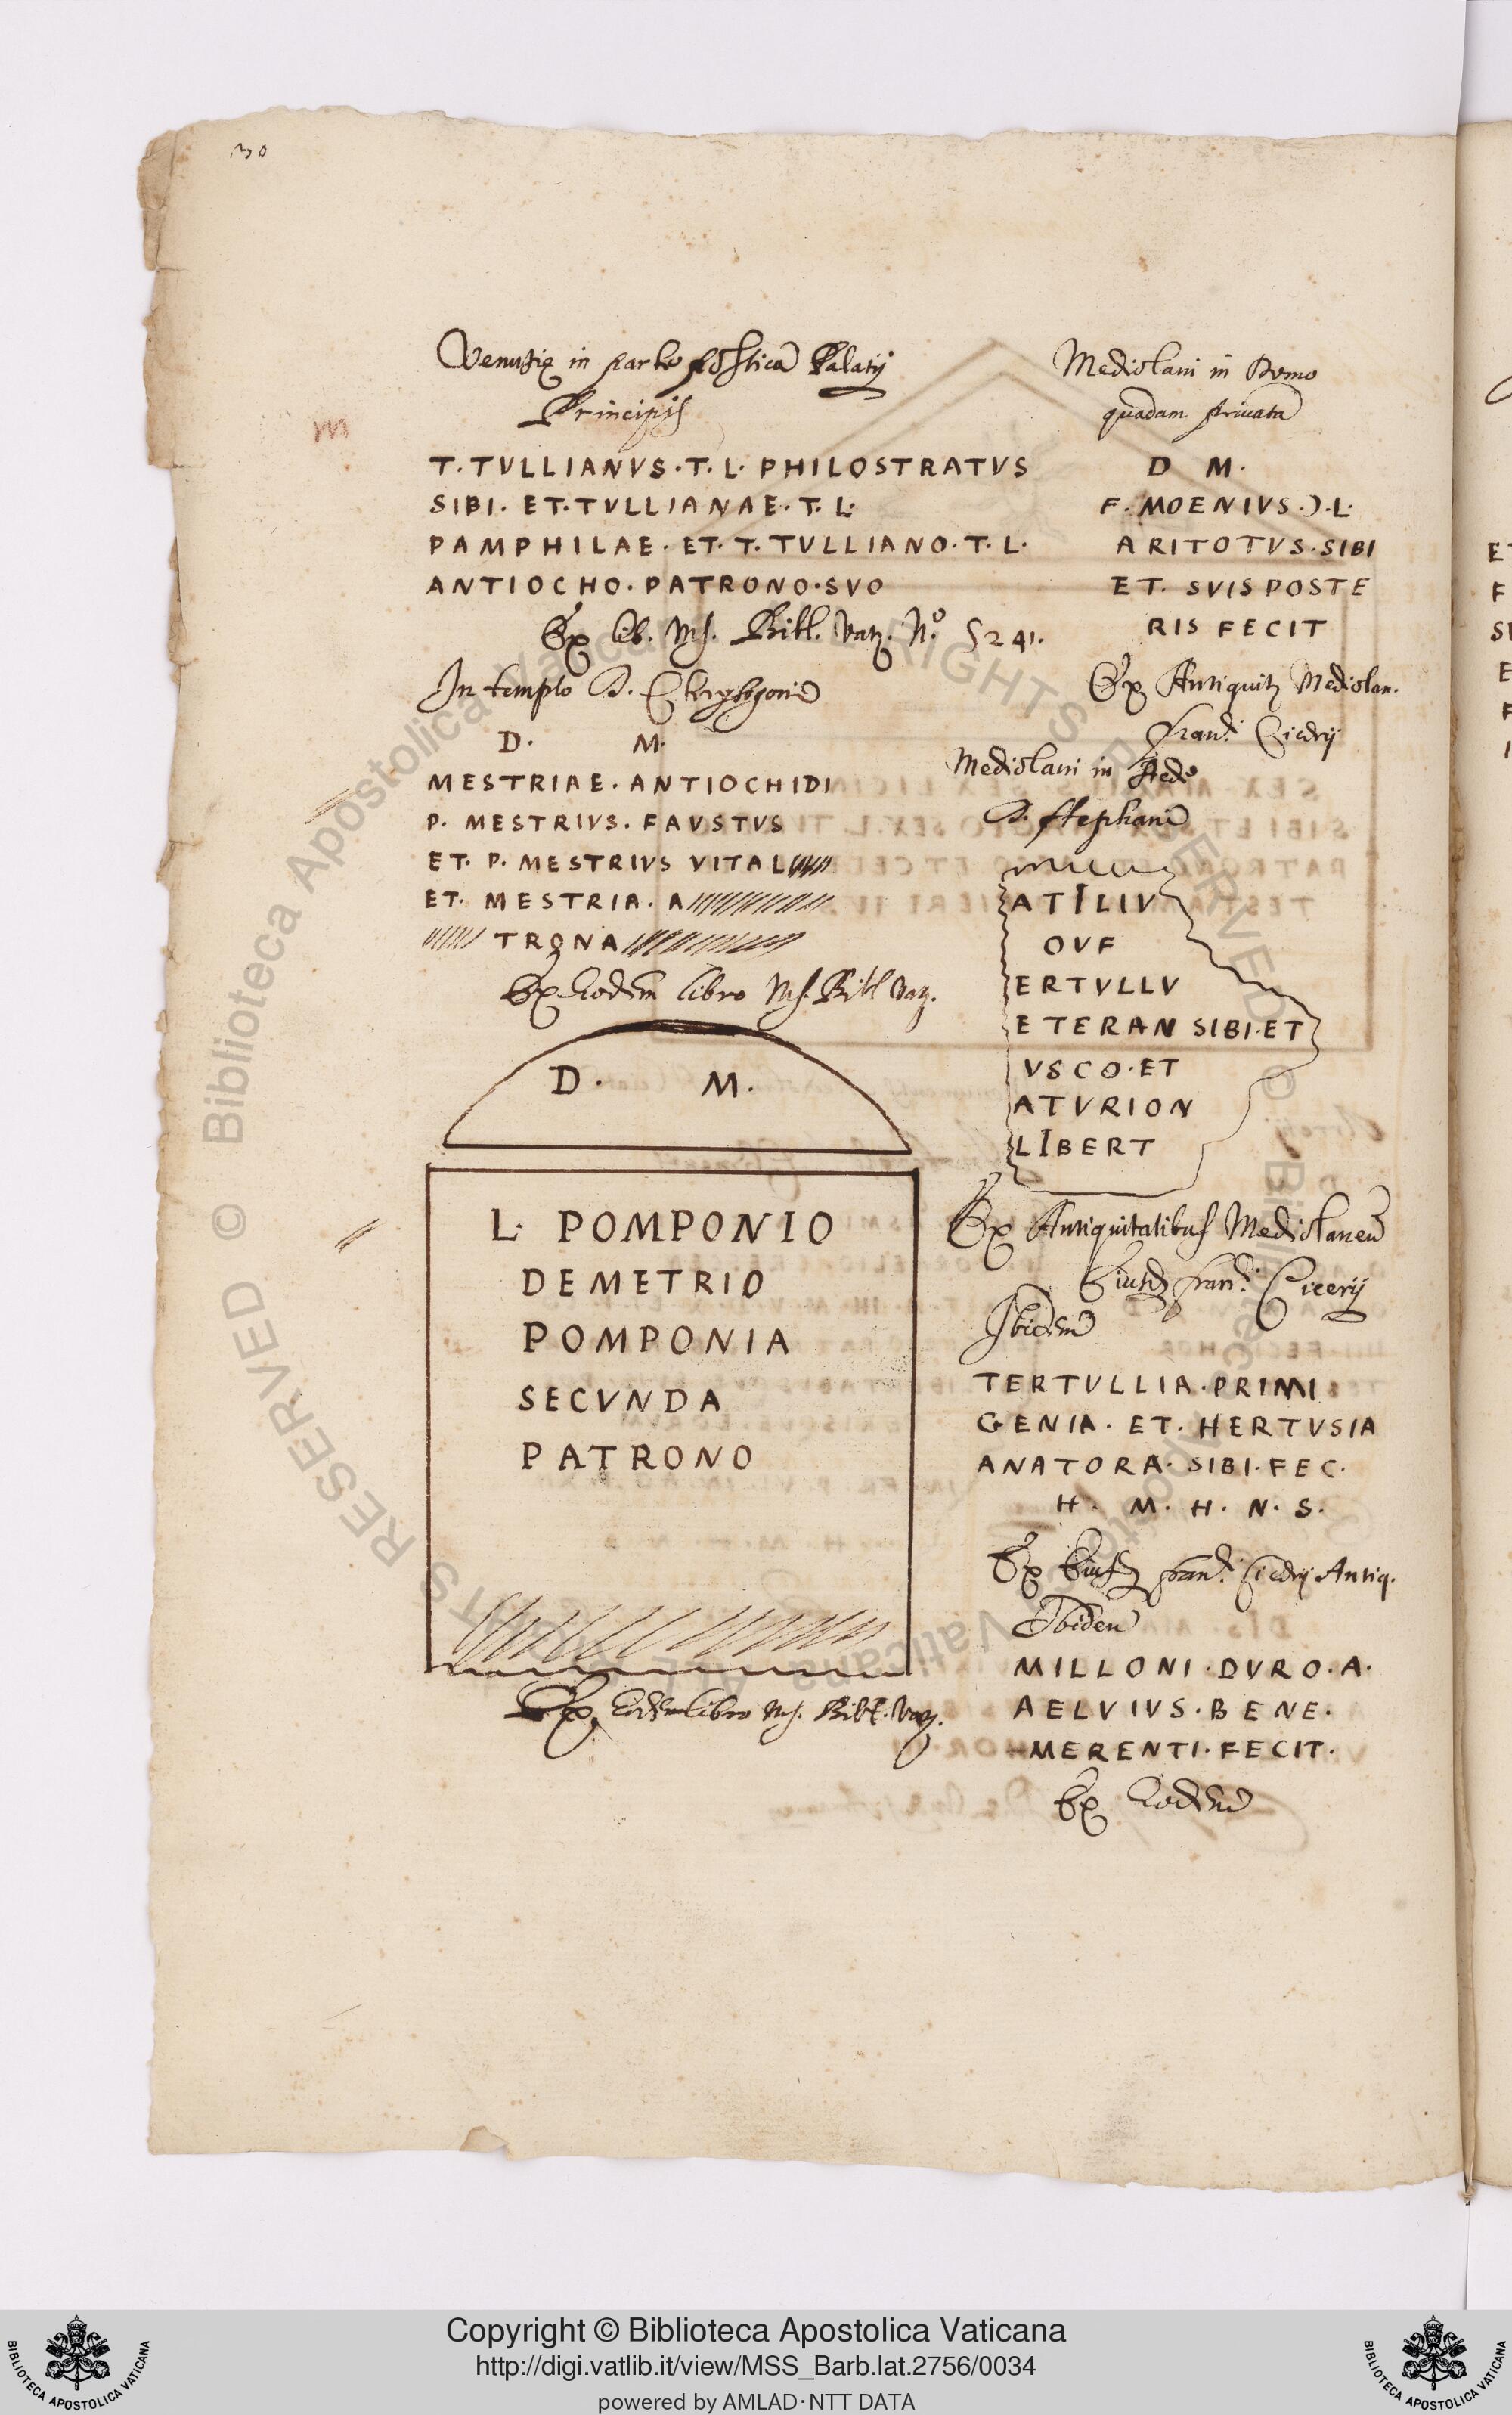 30
Venusię in parte postica Palatij
Principis
m
T. TVLLIANVS. T. L. PHILOSTRATVS
SIBI. ET. TVLLIANAE. T. L.
PAMPHILAE. ET. T. TVLLIANO. T. L.
ANTIOCHO. PATRONO. SVO
Ex lib. Ms. Bibl. Vatz. N.º 5241.
In templo D. Chrysogoni
D. M.
MESTRIAE. ANTIOCHIDI
P. MESTRIVS. FAVSTVS
ET. P. MESTRIVS VITAL
ET. MESTRIA. A
TRONA
Ex Eodem libro Ms. Bibl Vaz.
D. M.
L. POMPONIO
DEMETRIO
POMPONIA
SECVNDA
PATRONO
Ex Eodem libro Ms. Bibl. Vaz.
Mediolani in Domo
quadam priuata
D M.
F. MOENIVS. Ɔ. L.
ARITOTVS. SIBI
ET. SVIS POSTE
RIS FECIT
Ex Antiquitz Mediolan.
Fran.ci Cicerij
Mediolani in Aede
D. Stephani
ATILIV
OVF
ERTVLLV
ETERAN SIBI. ET
VSCO. ET
ATVRION
LIBERT
Ex Antiquitatibus Mediolanen
Eiusdz Fran.ci Cicerij
Ibidem
TERTVLLIA. PRIMI
GENIA. ET. HERTVSIA
ANATORA. SIBI. FEC.
H. M. H. N. S.
Ex Eiusdz Fran.ci Cicerij Antiq.
Ibidem
MILLONI. DVRO. A.
AELVIVS. BENE.
MERENTI. FECIT.
Ex Eodem
Copyright © Biblioteca Apostolica Vaticana
http://digi.vatlib.it/view/MSS_Barb.lat.2756/0034
powered by AMLAD·NTT DATA
BIBLIOTECA APOSTOLICA VATICANA
BIBLIOTECA APOSTOLICA VATICANA
© Biblioteca Apostolica Vaticana ALL RIGHTS RESERVED